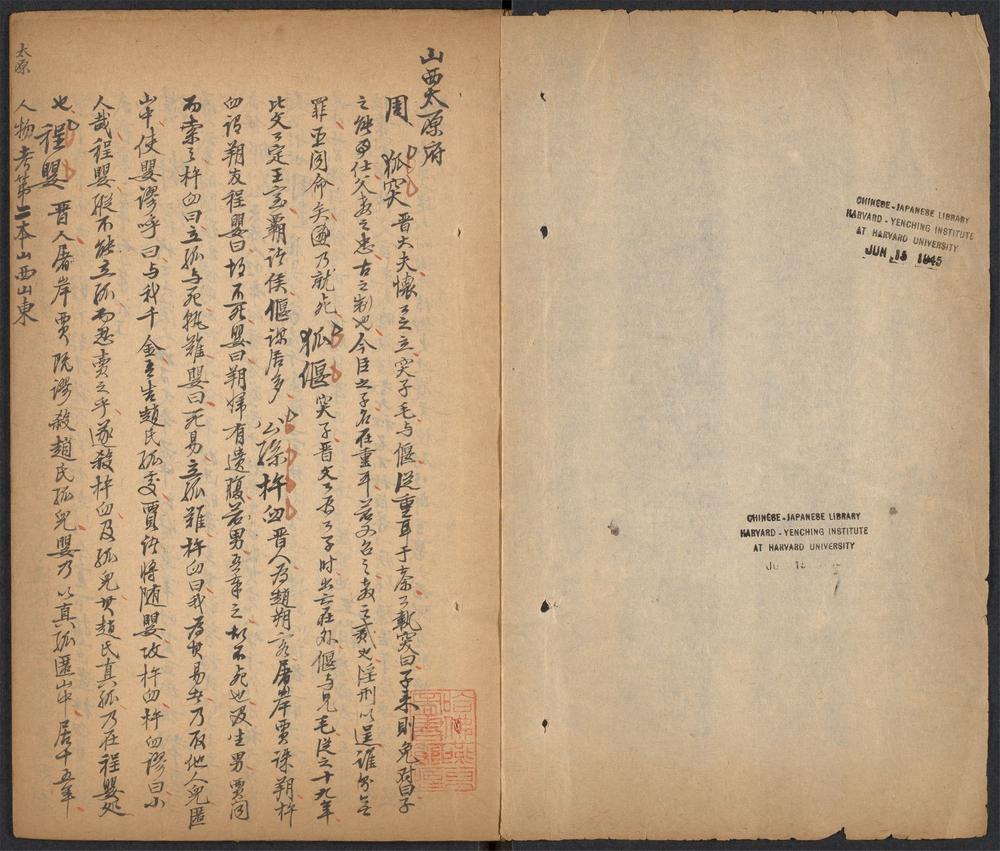 CHINESE-JAPANESE LIBRARY
HARVARD-YENCHING INSTITUTE
AT HARVARD UNIVERSITY
JUN 15 1945
CHINESE-JAPANESE LIBRARY
HARVARD-YENCHING INSTITUTE
AT HARVARD UNIVERSITY
山西太原府
周 狐突 晋大夫懷公立突子毛与偃從重耳于秦公執突曰子来則免對曰子
之能仕父教之忠古之制也今臣之子名在重耳若又召之教之貳也淫刑以逞誰則無
罪臣聞命矣乃就死 狐偃 突子晋文公為公子時出亡在外偃与兄毛從之十九年
比文公定王室霸諸侯偃謀居多 公孫杵臼 晋人為趙朔客屠岸賈誅朔杵
臼謂朔友程嬰曰胡不死嬰曰朔婦有遺腹若男吾奉之故不死也及生男賈聞
而索之杵臼曰立孤与死孰難嬰曰死易立孤難杵臼曰我為其易者乃取他人兒匿
山中使嬰謬呼曰与我千金吾告趙氏孤處賈諾將随嬰攻杵臼杵臼謬曰小
人哉程嬰縱不能立孤而忍賣之乎遂殺杵臼及孤兒其趙氏真孤乃在程嬰処
也 程嬰 晋人屠岸賈既謬殺趙氏孤兒嬰乃以真孤匿山中居十五年
太原 人物考第二本山西山東